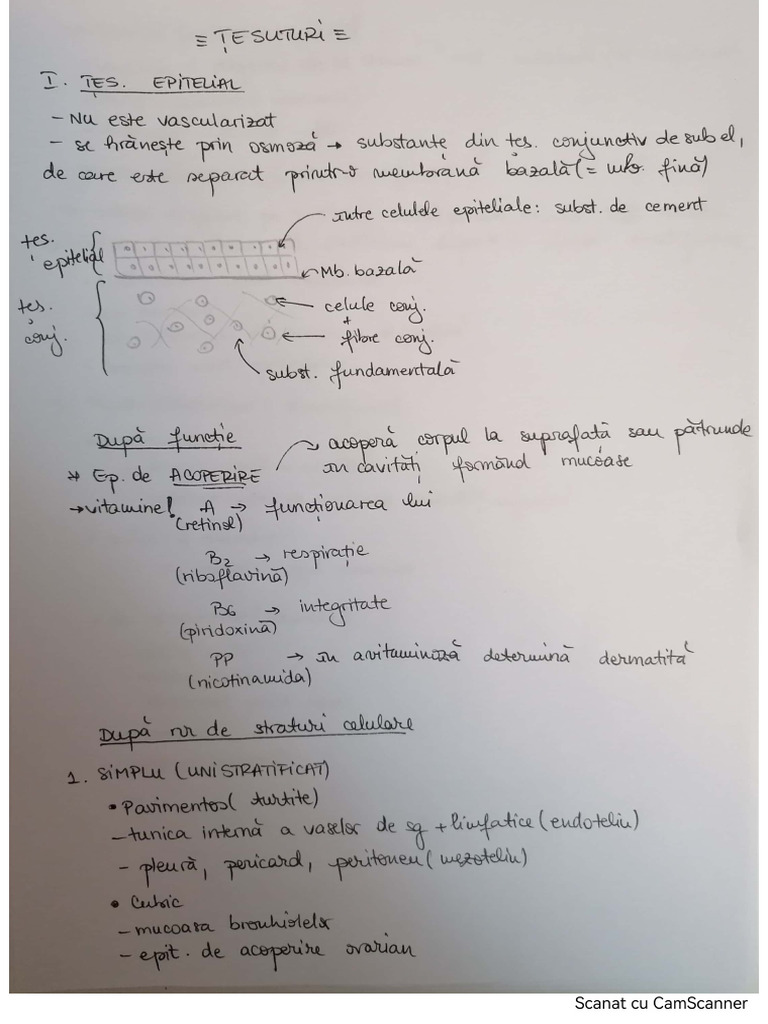 ≡ ȚESUTURI ≡
I. ȚES. EPITELIAL
- Nu este vascularizat
- se hrănește prin osmoză → substanțe din țes. conjunctiv de sub el,
de care este separat printr-o membrană bazală (= mb. fină)
între celulele epiteliale: subst. de cement
țes. epitelial
Mb. bazală
țes. conj.
celule conj.
+
fibre conj.
subst. fundamentală
După funcție
* Ep. de ACOPERIRE
→ acoperă corpul la suprafață sau pătrunde
în cavități formând mucoase
→ vitamine! A → funcționarea lui
(retinol)
B2 → respirație
(riboflavină)
B6 → integritate
(piridoxină)
PP → în avitaminoză determină dermatită
(nicotinamida)
După nr de straturi celulare
1. SIMPLU (UNISTRATIFICAT)
• Pavimentos (turtite)
- tunica internă a vaselor de sg + limfatice (endoteliu)
- pleură, pericard, peritoneu (mezoteliu)
• Cubic
- mucoasa bronhiolelor
- epit. de acoperire ovarian
Scanat cu CamScanner